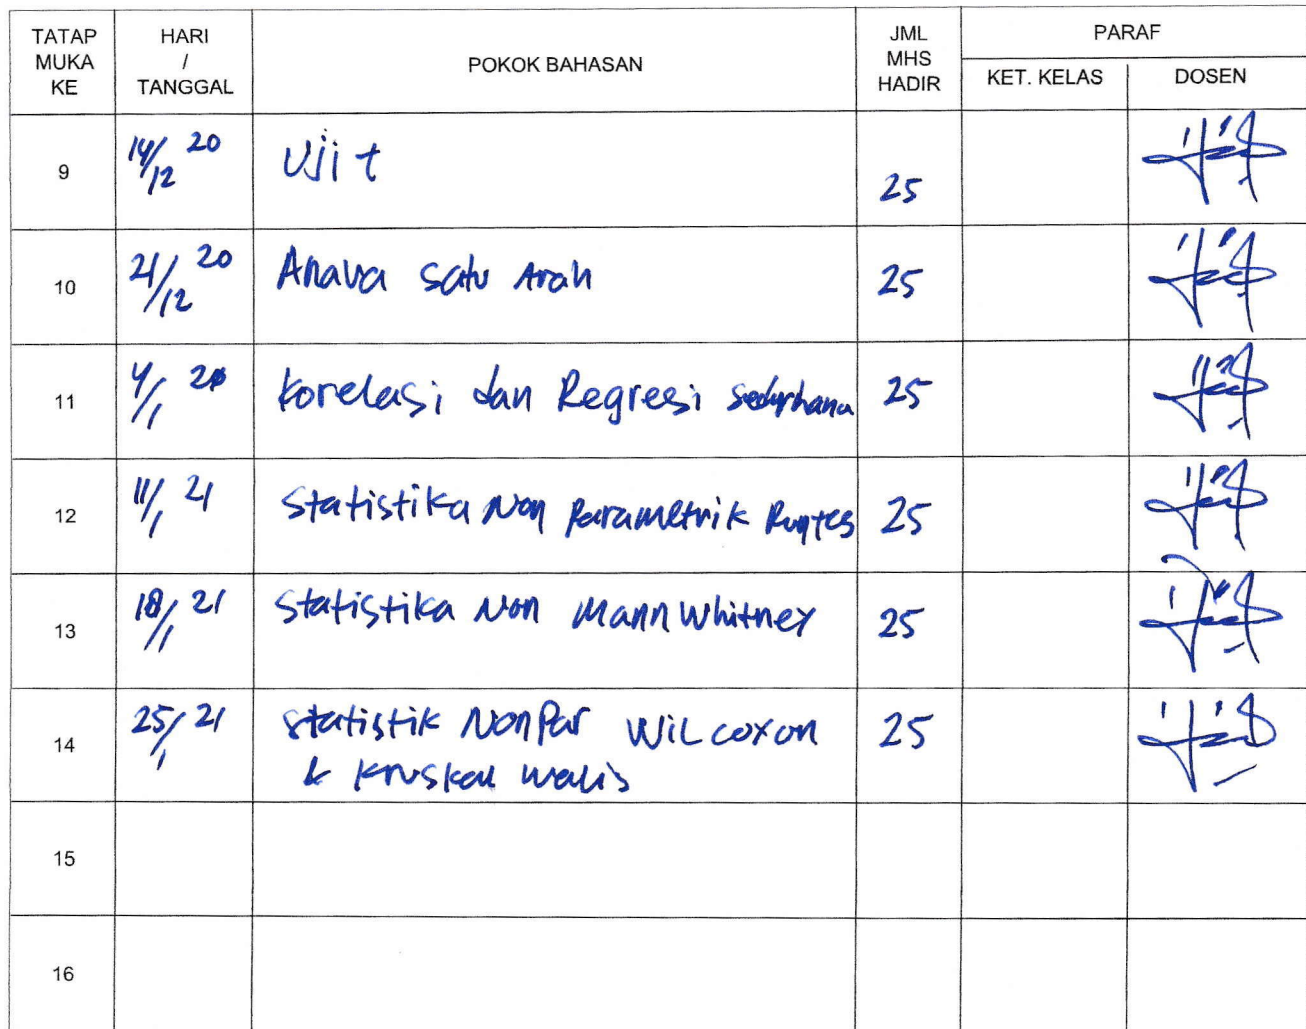 TATAP MUKA KE HARI / TANGGAL POKOK BAHASAN JML MHS HADIR PARAF
KET. KELAS DOSEN
9 14/12 20 Uji t 25
10 21/12 20 Anava satu Arah 25
11 4/1 20 Korelasi dan Regresi sederhana 25
12 11/1 21 Statistika Non Parametrik Runtes 25
13 18/1 21 Statistika Non Mann Whitney 25
14 25/1 21 Statistik NonPar WiLcoxon 25
& Kruskal Walis
15
16